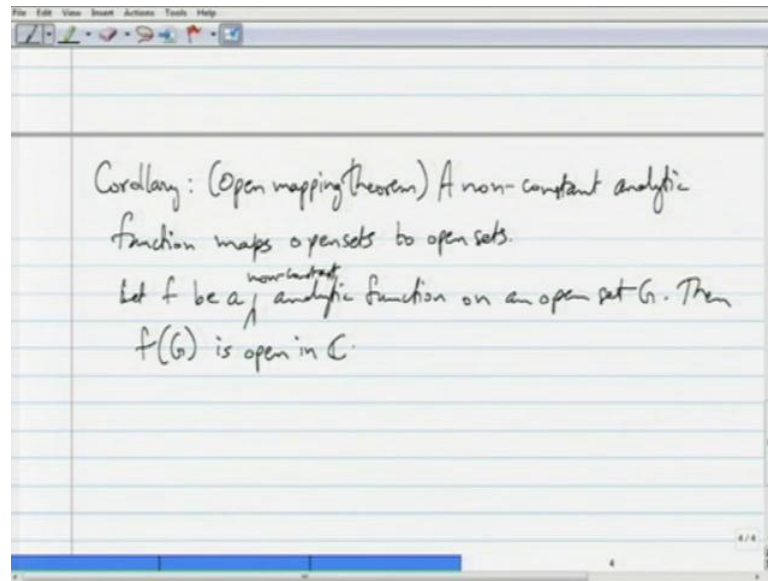 File Edit View Insert Actions Tools Help
Corollary : (Open mapping theorem) A non-constant analytic
function maps open sets to open sets.
Let f be a non-constant analytic function on an open set G. Then
f(G) is open in ℂ.
4/4
4